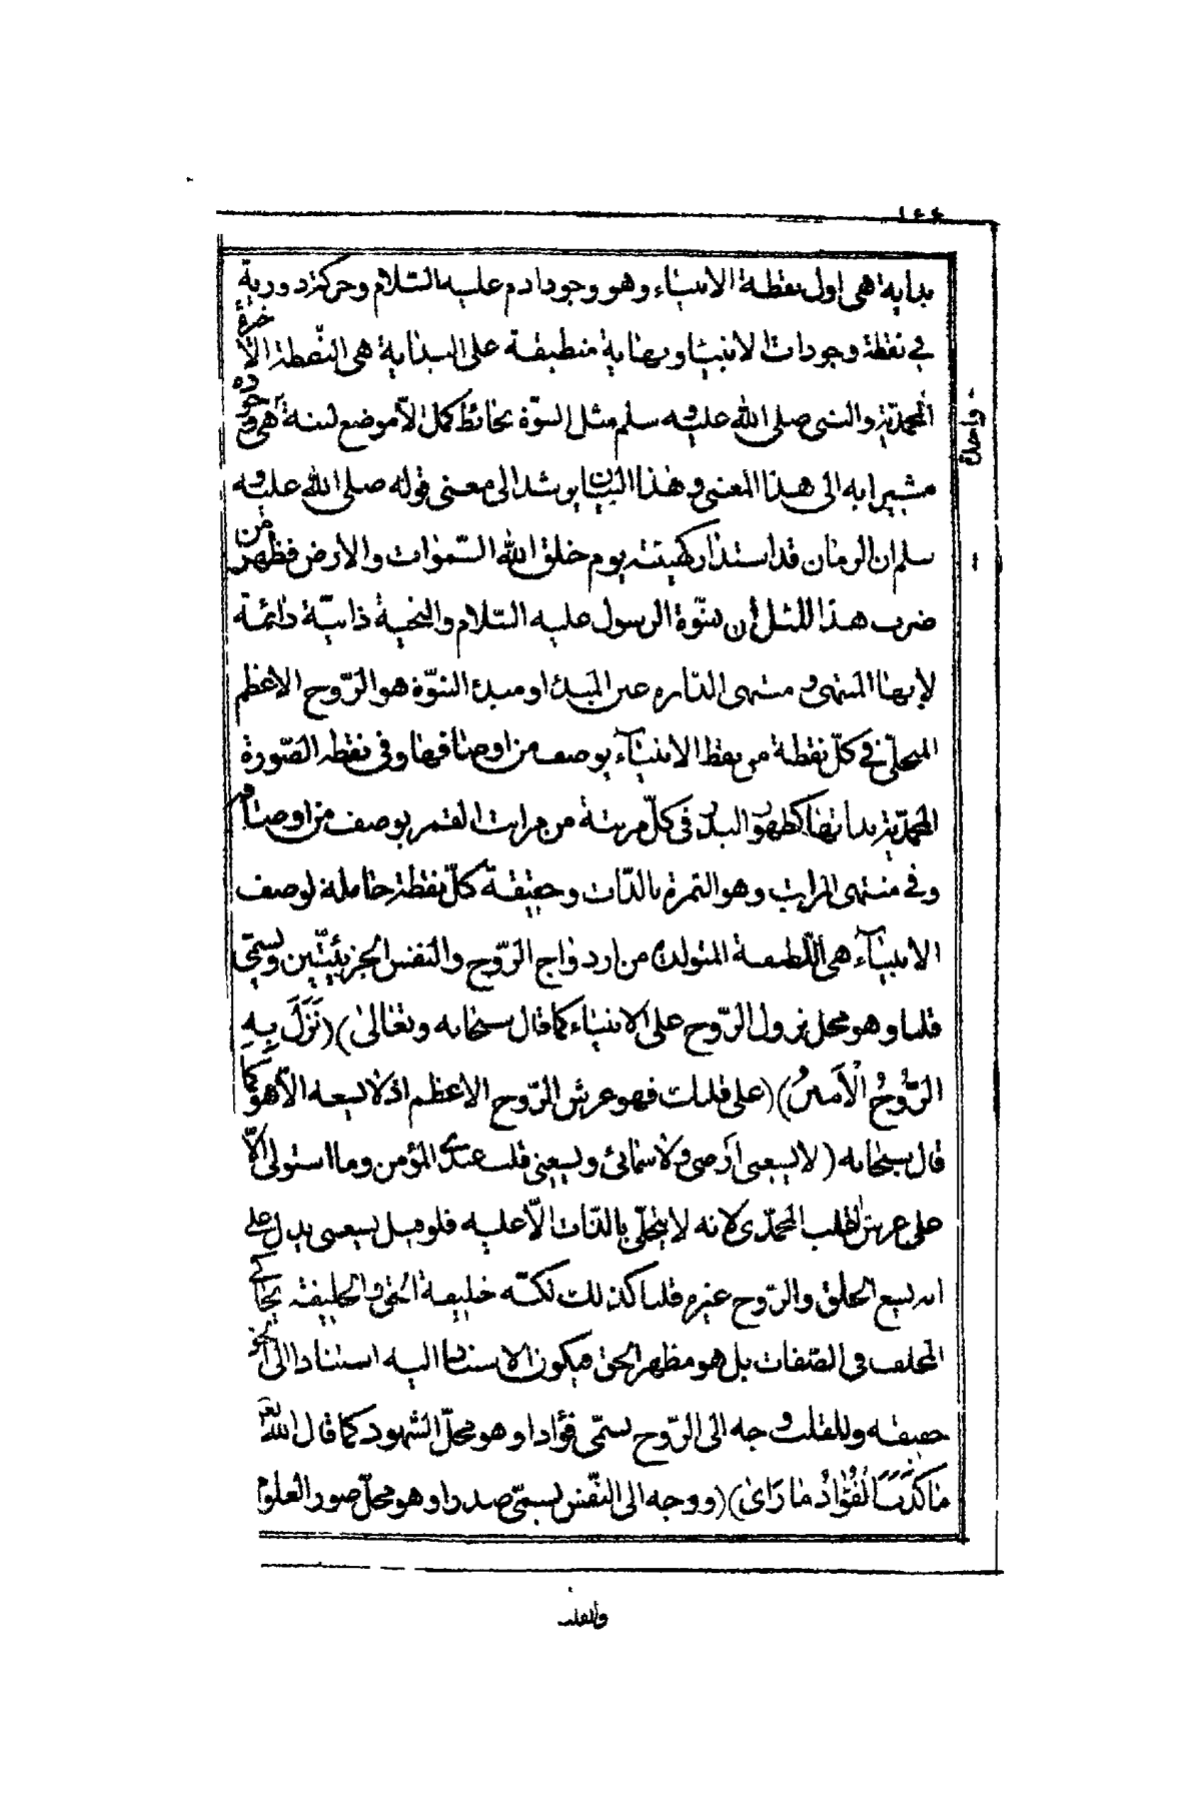 ١٤٤
بداية هى اول نقطة الانبياء وهو وجود ادم عليه السّلام وحركة دورية
في نقطة وجودات الانبياء ونهاية منطبقة على البداية هى النّقطة الآخرة
المحمّدية والنبى صلى الله عليه وسلم مثل النبوّة بحائط كمل الّا موضع لبنة
واحدة
مشيرا به الى هذا المعنى وهذا البيان يرشد الى معنى قوله صلى الله عليه و
سلم ان الزمان قد استدار كهيئته يوم خلق الله السّموات والارض فظهر من
ضرب هذا المثل أن نبوّة الرسول عليه السّلام والتحية ذاتيّة دائمة
لإنها المنتهى و منتهى الدائرة عين المبدأ ومبدء النبوّة هو الرّوح الاعظم
المتجلّى في كلّ نقطة من نقط الانبيآء بوصف من اوصافها وفى نقطة الصّورة
المحمّدية بذاتها كظهور البدر فى كلّ مرتبة من مراتب القمر بوصف من اوصافه
وفي منتهى المراتب وهو القمرة بالذّات وحقيقة كلّ نقطة حاملة لوصف
الانبيآء هى اللّطيفة المتولدة من ازدواج الرّوح والنفس الجزئيّتين ويسمّى
قلبا وهو محل نزول الرّوح على الانبياء كما قال سبحانه وتعالى (نَزَلَ بِهِ
الرُّوحُ الْأَمِينُ) (على قلبك فهو عرش الرّوح الاعظم اذ لا يسعه الّا هو كما
قال سبحانه (لا يسعنى ارضى ولا سمائى ويسعنى قلب عبدى المؤمن وما استولى الّا
على عرش القلب المحمّدى لانه لا يتجلّى بالذّات الّا عليه فلو قيل يسعنى يدل على
انه يسع الحق والرّوح غيره قلنا كذلك لكنّه خليفة الحق والخليفة يحاكى
المخلف فى الصّفات بل هو مظهر الحق فيكون الاسناد اليه استنادا الى الحق
حقيقه وللقلب وجه الى الرّوح يسمّى فؤادا وهو محلّ الشهود كما قال الله تع
مَا كَذَبَ الْفُؤَادُ مَا رَأى) (ووجه الى النفّس يسمّى صدرا وهو محلّ صور العلوم
والقلب